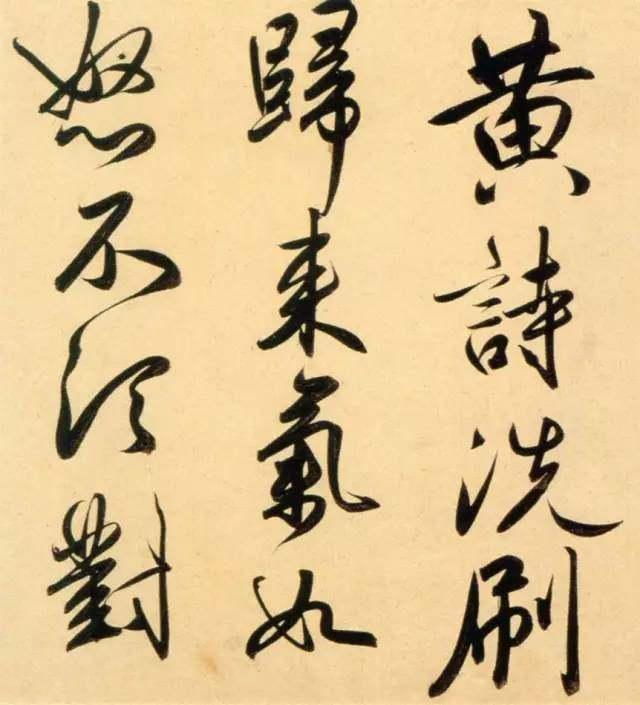 黄詩洗刷
歸来氣如
怒不須對